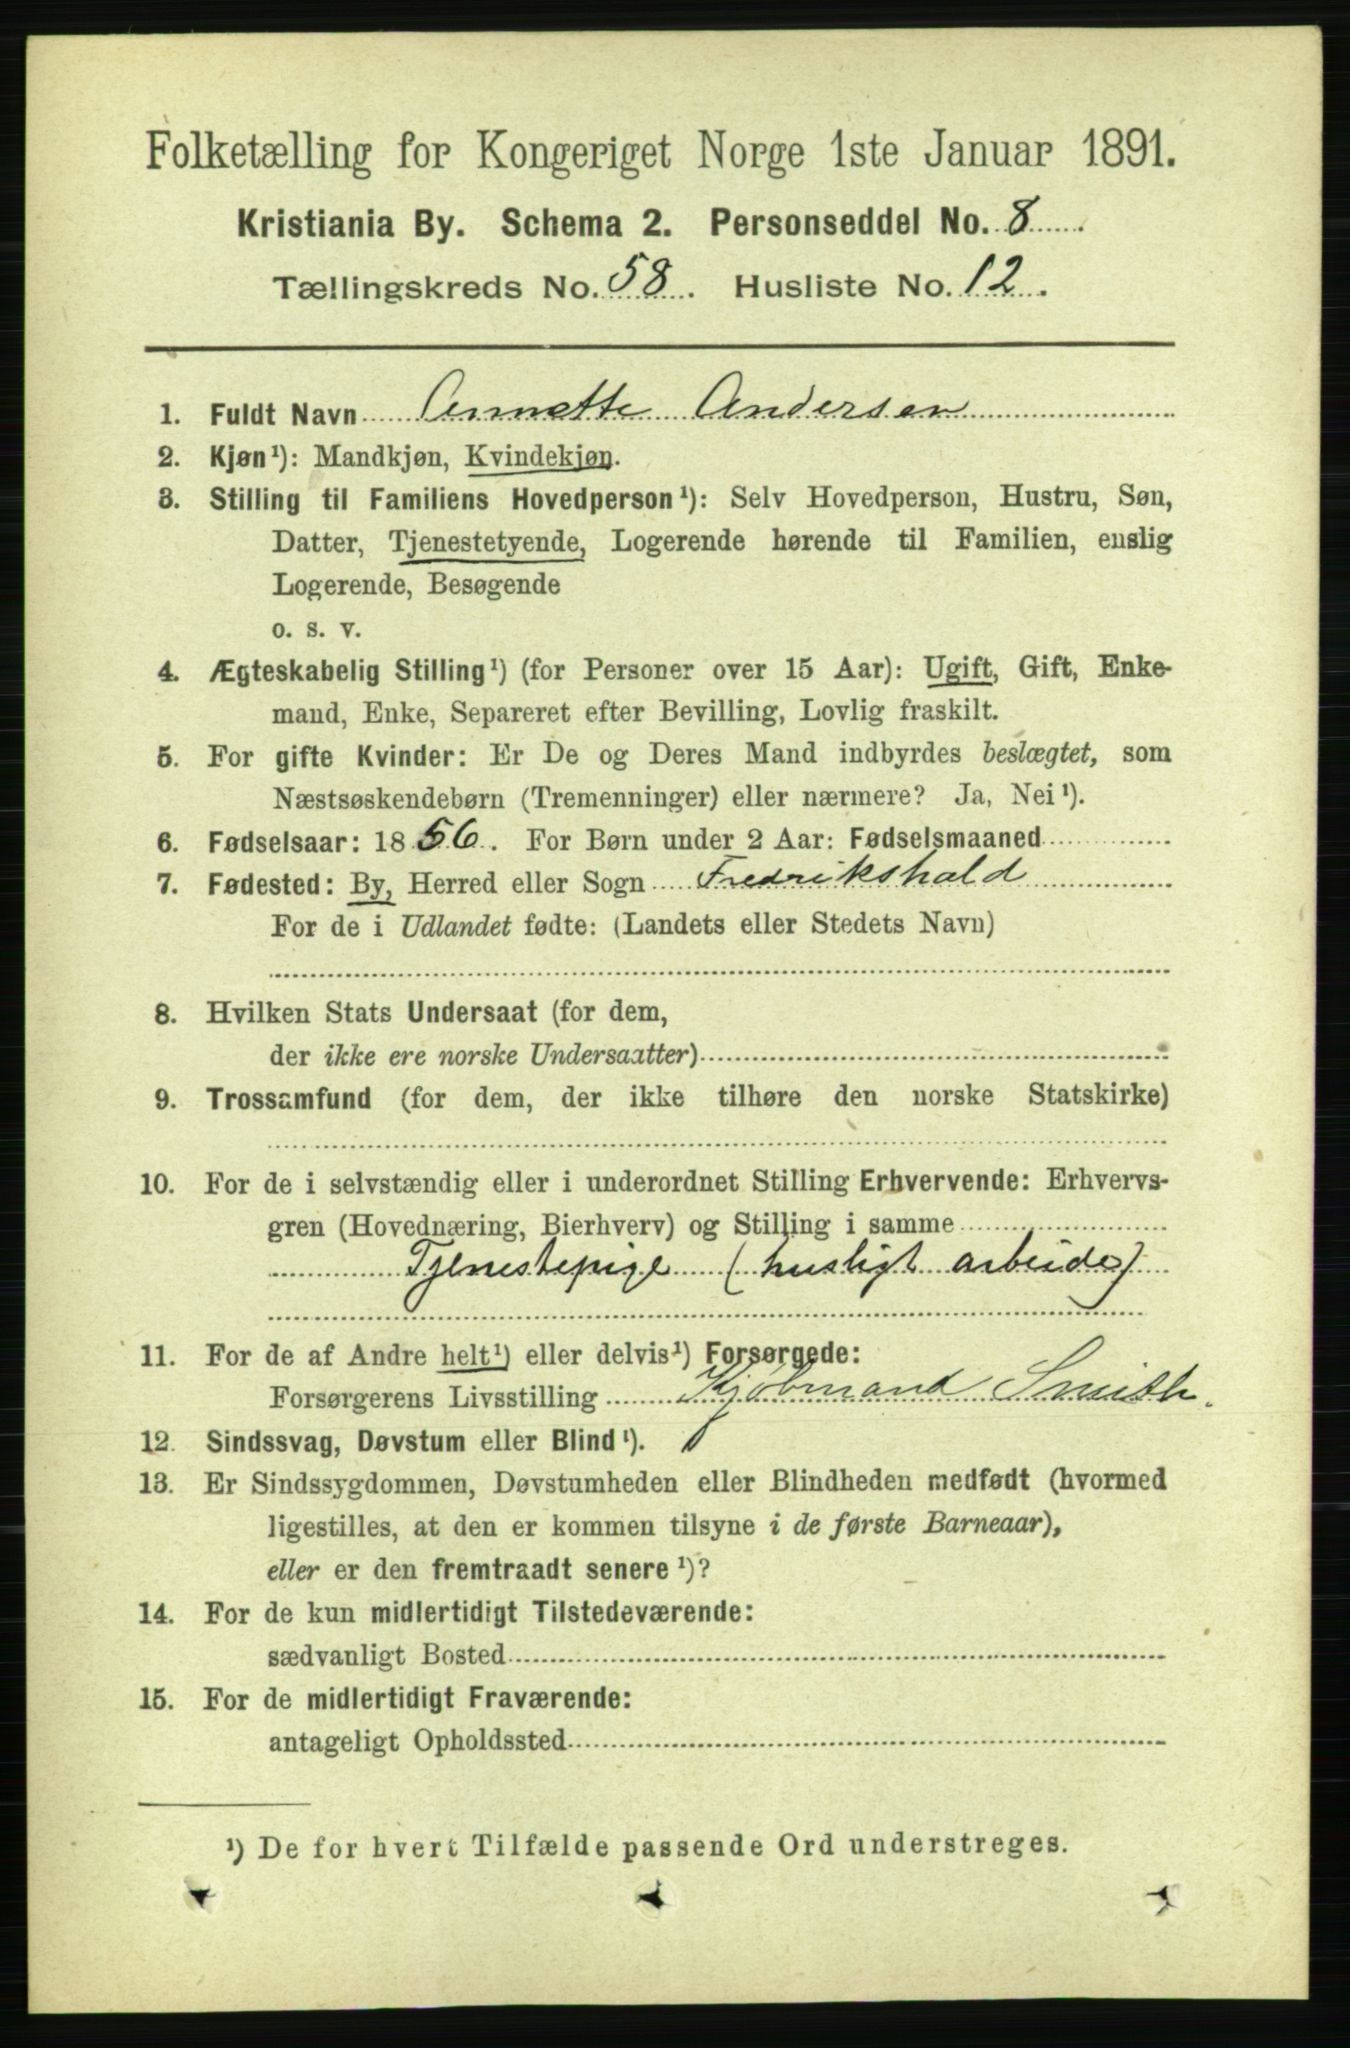 Folketælling for Kongeriget Norge 1ste Januar 1891.
Kristiania By. Schema 2. Personseddel No. 8.
Tællingskreds No. 58. Husliste No. 12.
1. Fuldt Navn Annette Andersen
2. Kjøn¹): Mandkjøn, Kvindekjøn.
3. Stilling til Familiens Hovedperson¹): Selv Hovedperson, Hustru, Søn,
Datter, Tjenestetyende, Logerende hørende til Familien, enslig
Logerende, Besøgende
o. s. v.
4. Ægteskabelig Stilling¹) (for Personer over 15 Aar): Ugift, Gift, Enke-
mand, Enke, Separeret efter Bevilling, Lovlig fraskilt.
5. For gifte Kvinder: Er De og Deres Mand indbyrdes beslægtet, som
Næstsøskendebørn (Tremenninger) eller nærmere? Ja, Nei¹).
6. Fødselsaar: 1856. For Børn under 2 Aar: Fødselsmaaned
7. Fødested: By, Herred eller Sogn Fredrikshald
For de i Udlandet fødte: (Landets eller Stedets Navn)
8. Hvilken Stats Undersaat (for dem,
der ikke ere norske Undersaatter)
9. Trossamfund (for dem, der ikke tilhøre den norske Statskirke)
10. For de i selvstændig eller i underordnet Stilling Erhvervende: Erhvervs-
gren (Hovednæring, Bierhverv) og Stilling i samme
Tjenestepige (husligt arbeide)
11. For de af Andre helt¹) eller delvis¹) Forsørgede:
Forsørgerens Livsstilling Kjøbmand Smith.
12. Sindssvag, Døvstum eller Blind¹).
13. Er Sindssygdommen, Døvstumheden eller Blindheden medfødt (hvormed
ligestilles, at den er kommen tilsyne i de første Barneaar),
eller er den fremtraadt senere¹)?
14. For de kun midlertidigt Tilstedeværende:
sædvanligt Bosted
15. For de midlertidigt Fraværende:
antageligt Opholdssted
¹) De for hvert Tilfælde passende Ord understreges.